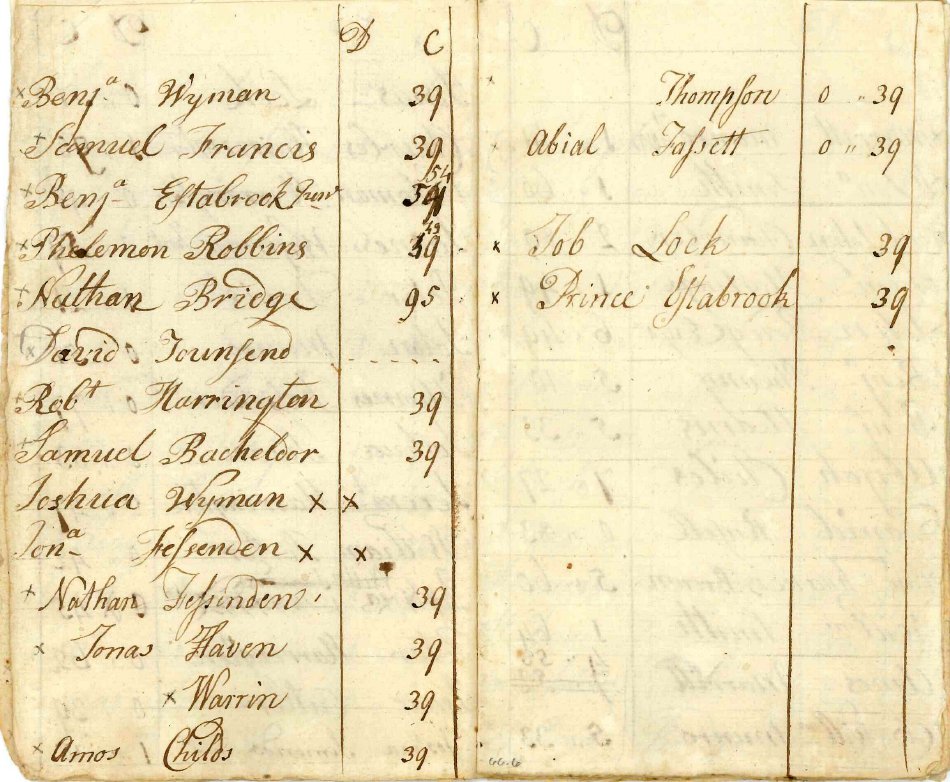 D C
x Benjª Wyman 39
+ Samuel Francis 39
x Benjª Estabrook Junr 54 54
x Phelemon Robbins 43 39
+ Nathan Bridge 95
David Tounsend - - - - -
+ Robt Harrington 39
Samuel Bacheldor 39
Joshua Wyman x x
Jonª Fessenden x x
+ Nathan Fessinden 39
x Jonas Haven 39
x Warrin 39
x Amos Childs 39
Thompson 0 " 39
Abial Fassett 0 " 39
x Job Lock 39
x Prince Estabrook 39
66.6